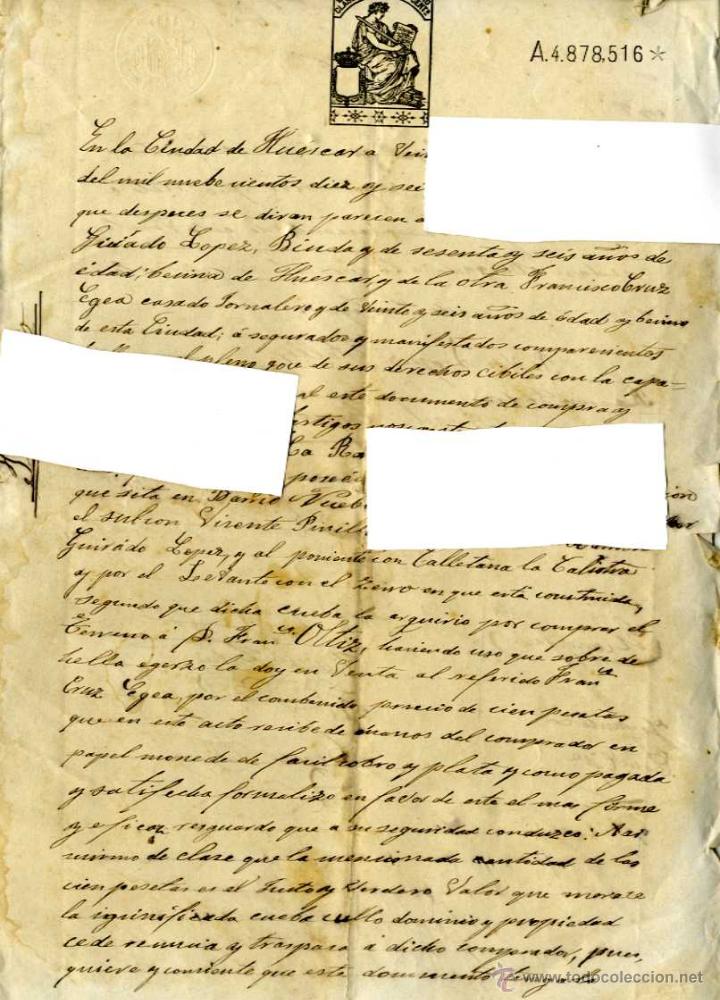 A.4.878,516*
En la Ciudad de Huescar a Vein
del mil nuebecientos diez y sei
que despues se diran parecen a
Guirado Lopez, Biuda y de sesenta y seis años de
edad; becina de Huescar, y de la otra Francisco Cruz
Egea casado Jornalero y de Veinte y seis años de edad y becino
de esta Ciudad; á segurados y manifestados comparecientes
pleno goce de sus derechos cibiles con la capa=
al este documento de compra y
La Ra
que sita en Barrio Nuebo
el sulcon Vicente Pinill
Guirado Lopez, y al poniente con Calletana la
y por el Levante con el Zerro en que está construida,
segundo que dicha cueba la arquirio por comprar el
terreno á D. Franco Ortiz, haciendo uso que sobre de
hella egerzo la doy en Venta al referido Franco
Cruz Egea, por el combenido precio de cien pesetas
que en este acto recibe de manos del comprador en
papel monede de facil cobro y plata y como pagada
y satifecha formalizo en fabor de este el mas firme
y eficaz resguardo que a su seguridad conduzca: Asi
mismo de clase que la mencionada cantidad de las
cien pesetas es el Justo y Verdero Valor que merece
la significada cueba cullo dominio y propiedad
cede renuncia y traspasa á dicho comprador, pues
quiere y consiente que este documento tenga
todocoleccion.net